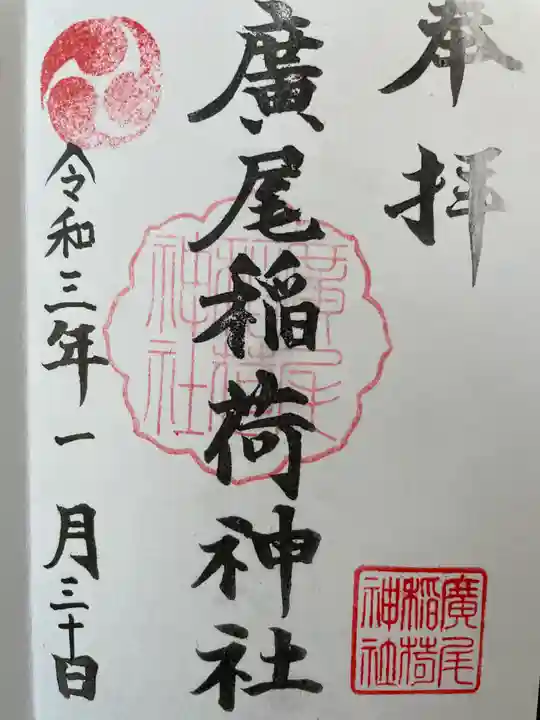 奉拝
廣尾稲荷神社
廣尾稲荷神社
令和三年一月三十日
廣尾稲荷神社